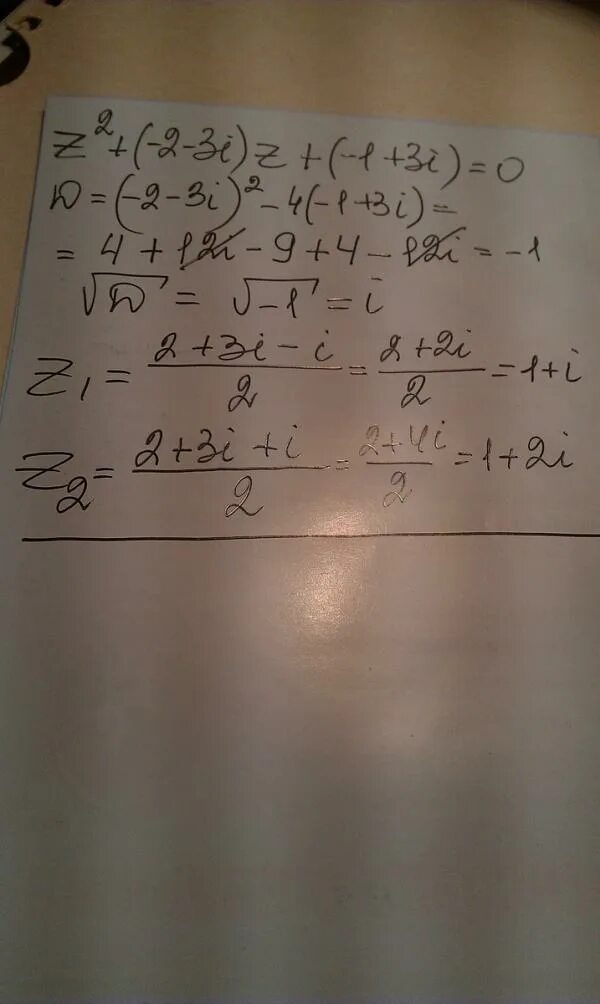 z² + (-2-3i)z + (-1+3i) = 0
D = (-2-3i)² - 4(-1+3i) =
= 4 + 12i - 9 + 4 - 12i = -1
√D = √-1 = i
z₁ = (2+3i-i)/2 = (2+2i)/2 = 1+i
z₂ = (2+3i+i)/2 = (2+4i)/2 = 1+2i